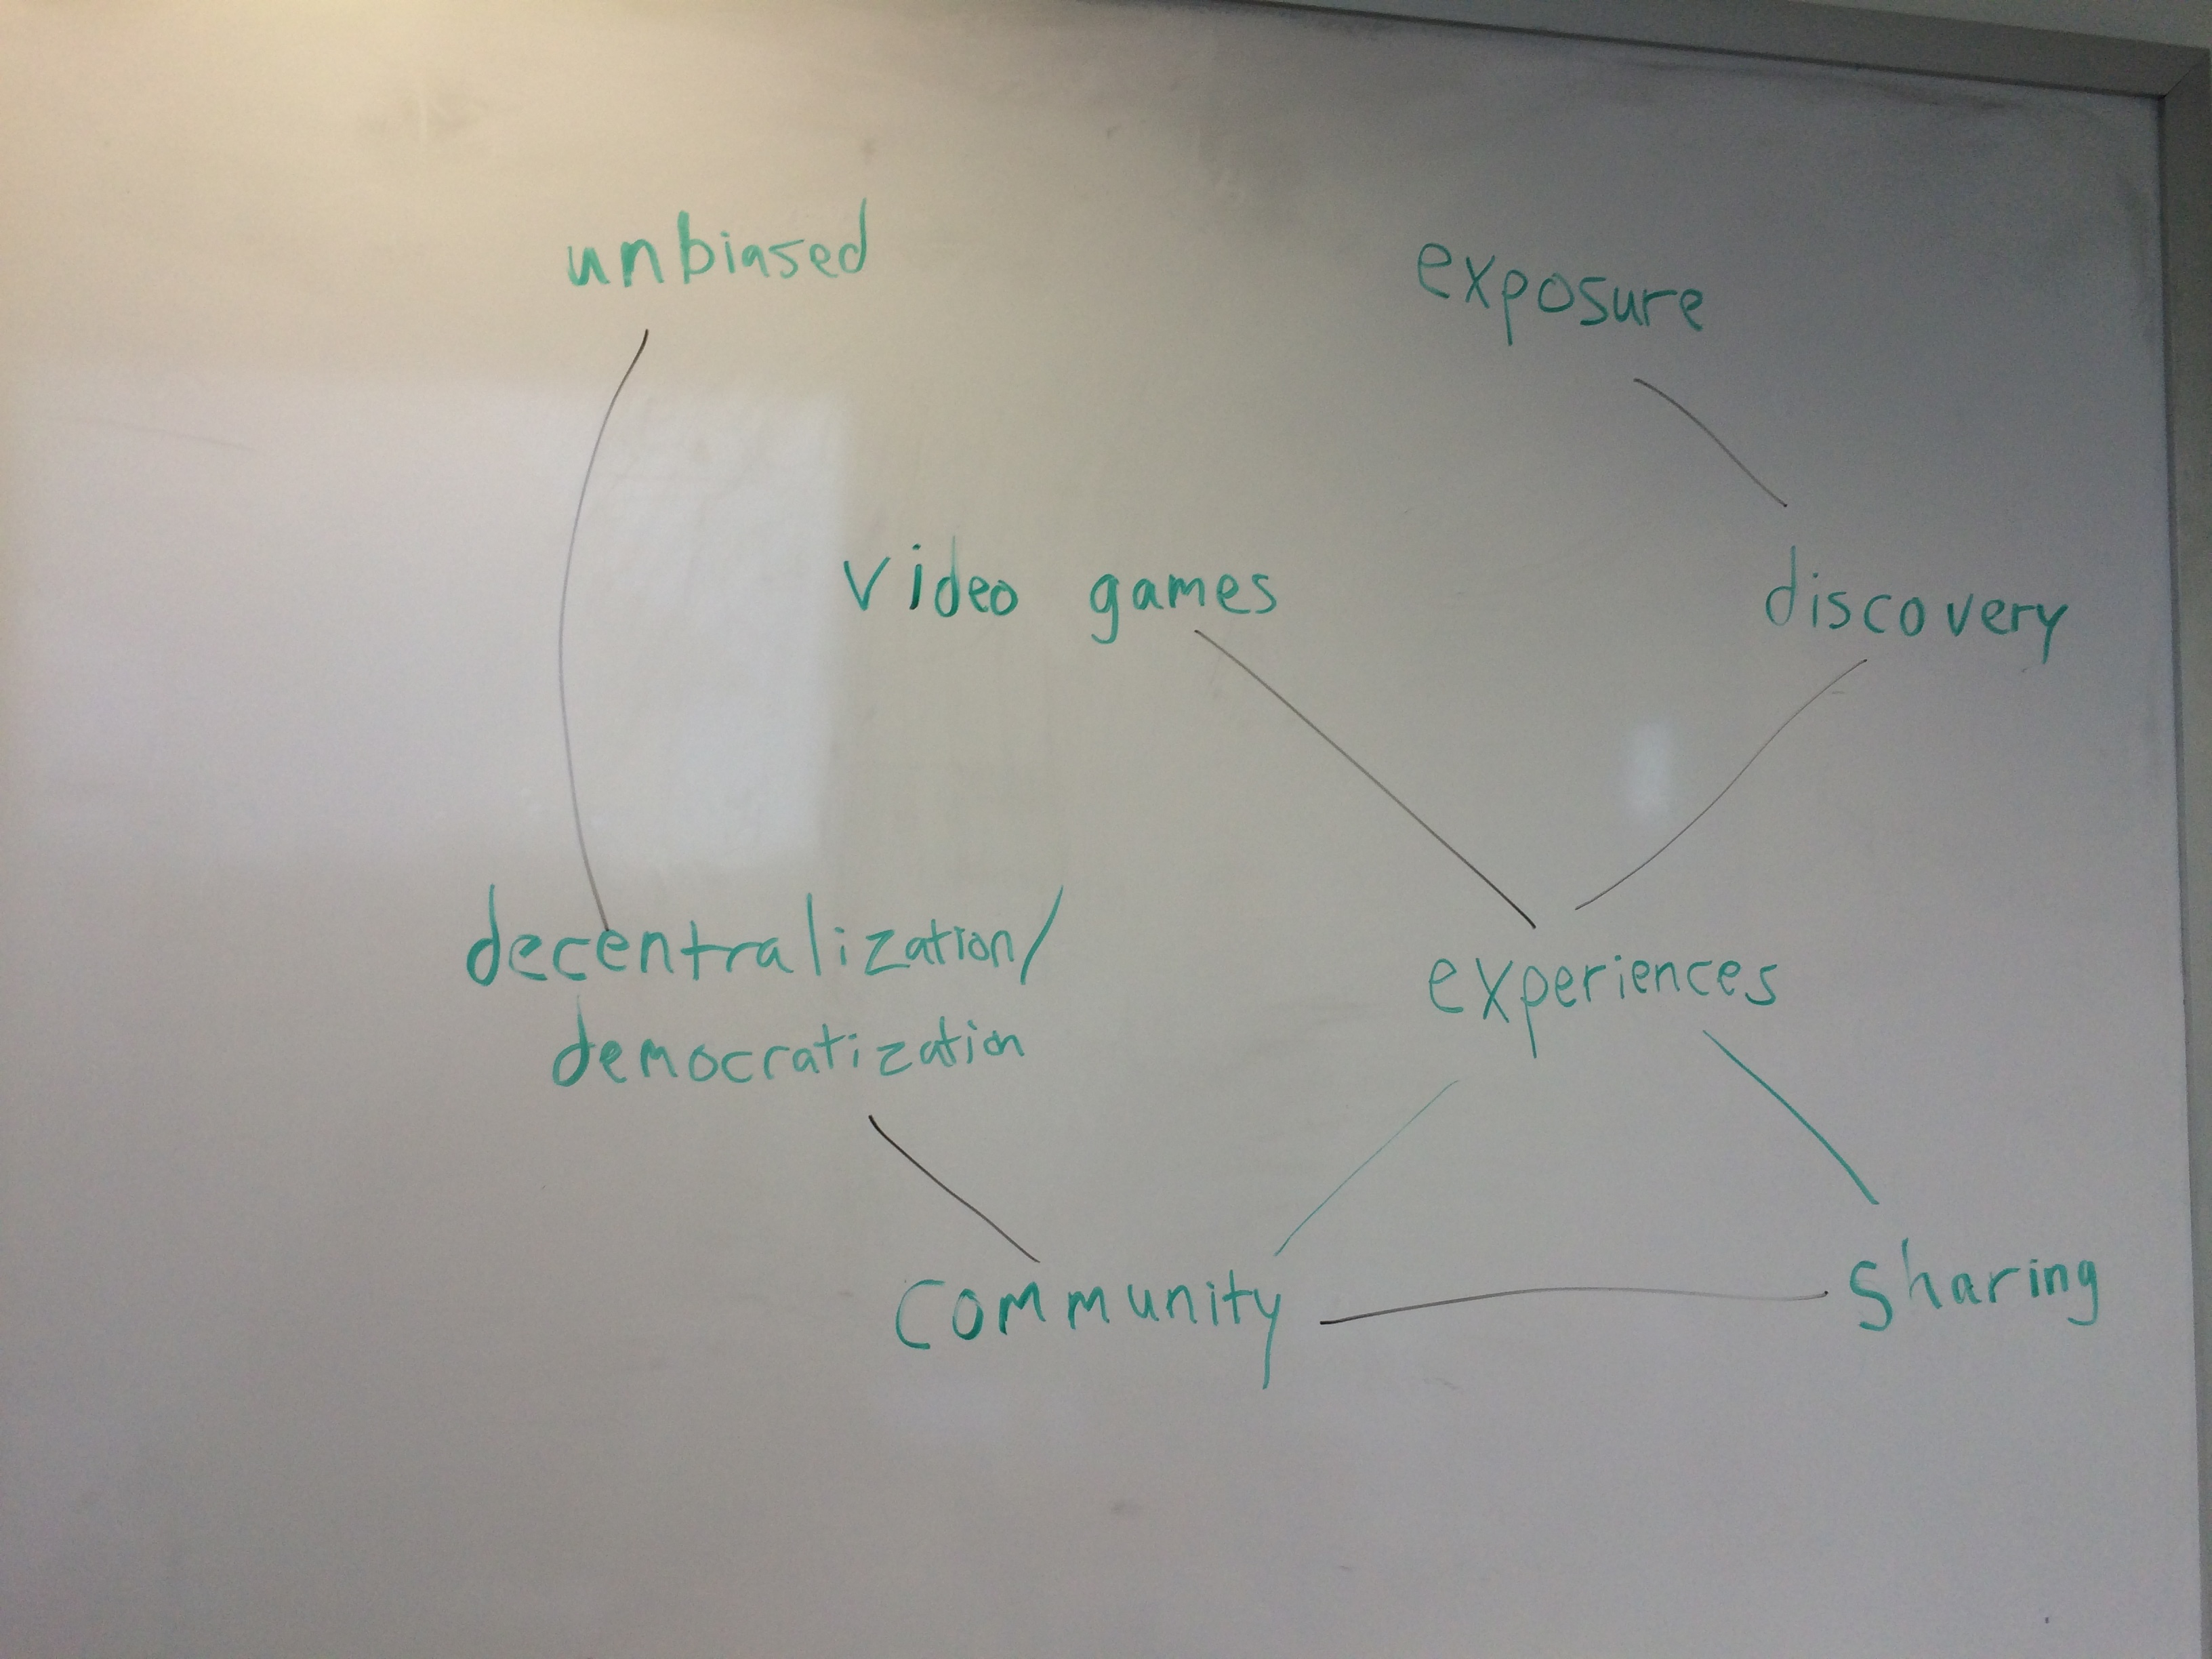 unbiased
exposure
video games
discovery
decentralization/
democratization
experiences
Community
Sharing